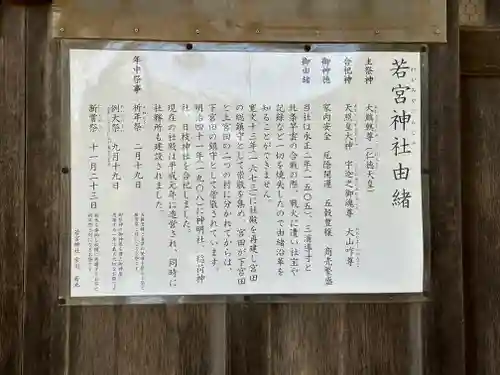 若宮神社由緒
わかみやじんじゃ
主祭神　大鷦鷯尊（仁徳天皇）
合祀神　天照皇大神　宇迦之御魂尊　大山咋尊
御神徳　家内安全　厄除開運　五穀豊穣　商売繁盛
御由緒　当社は永正二年（一五〇五）、三浦導寸と
北条早雲の合戦の際、戦火に遭い社宝や
記録など一切を焼失したので由緒沿革を
知ることができません。
寛文十三年（一六七三）に社殿を再建し宮田
の総鎮守として崇敬を集め、宮田が下宮田
と上宮田の二つの村に分かれてからは、
下宮田の鎮守として崇敬されています。
明治四十一年（一九〇八）に神明社、稲荷神
社、日枝神社を合祀しました。
現在の社殿は平成元年に造営され、同時に
社務所も建設されました。
年中祭事
祈年祭　二月十九日
例大祭　九月十九日
新嘗祭　十一月二十三日
若宮神社